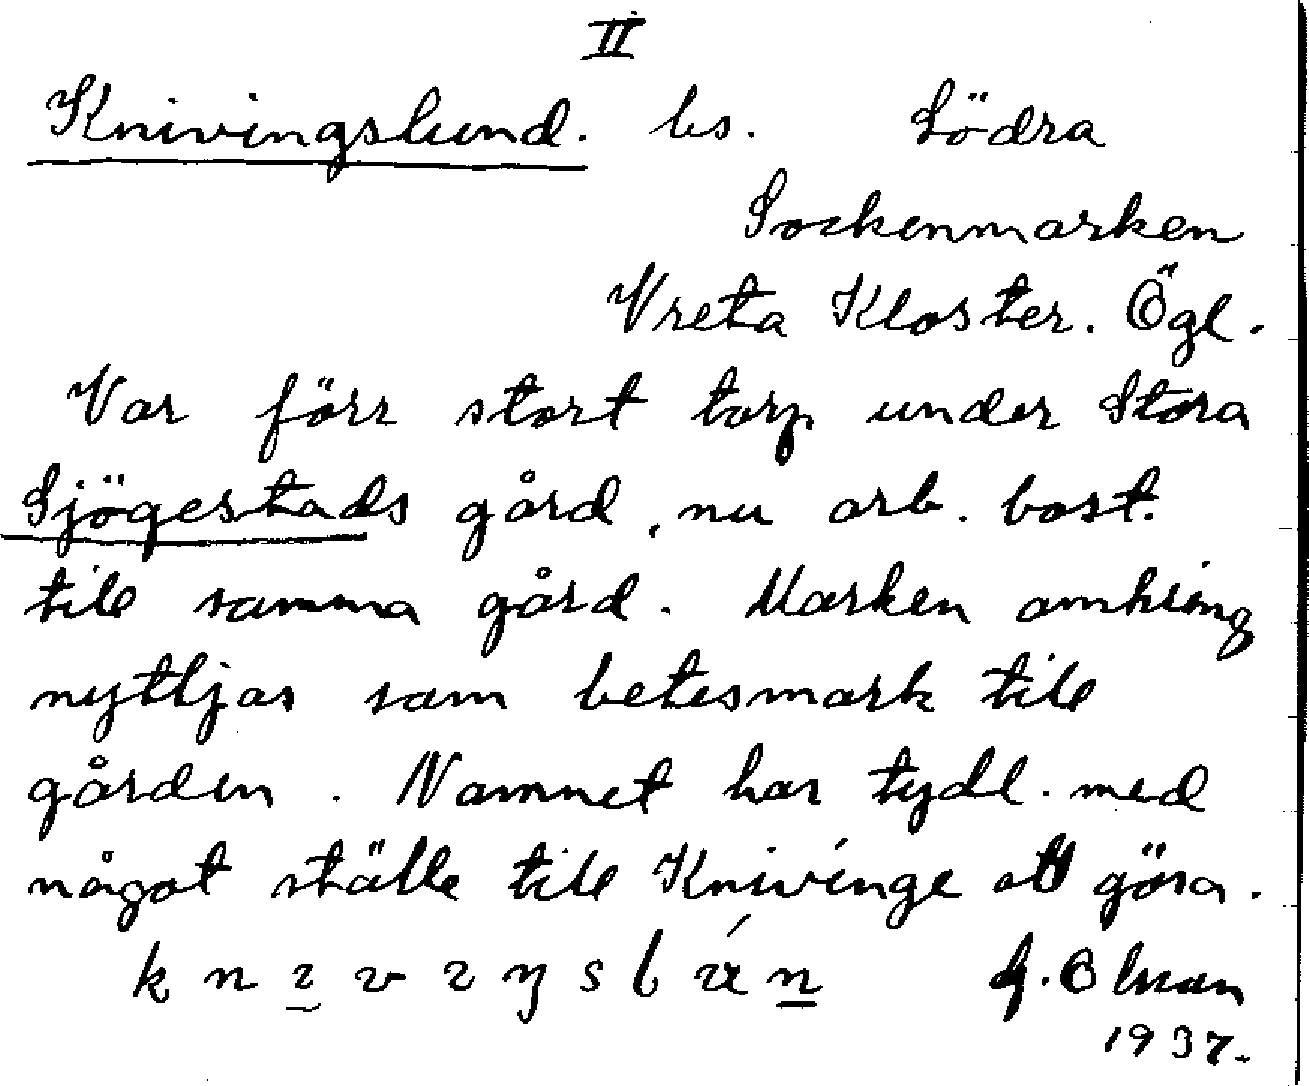 II
Knivingslund. bs. Södra
Sockenmarken
Vreta Kloster. Ögl.
Var förr stort torp under Stora
Sjögestads gård, nu arb. bost.
till samma gård. Marken omkring
nyttjas som betesmark till
gården. Namnet har tydl. med
något ställe till Knivinge att göra.
k n v s l n G. Olsson
1937.